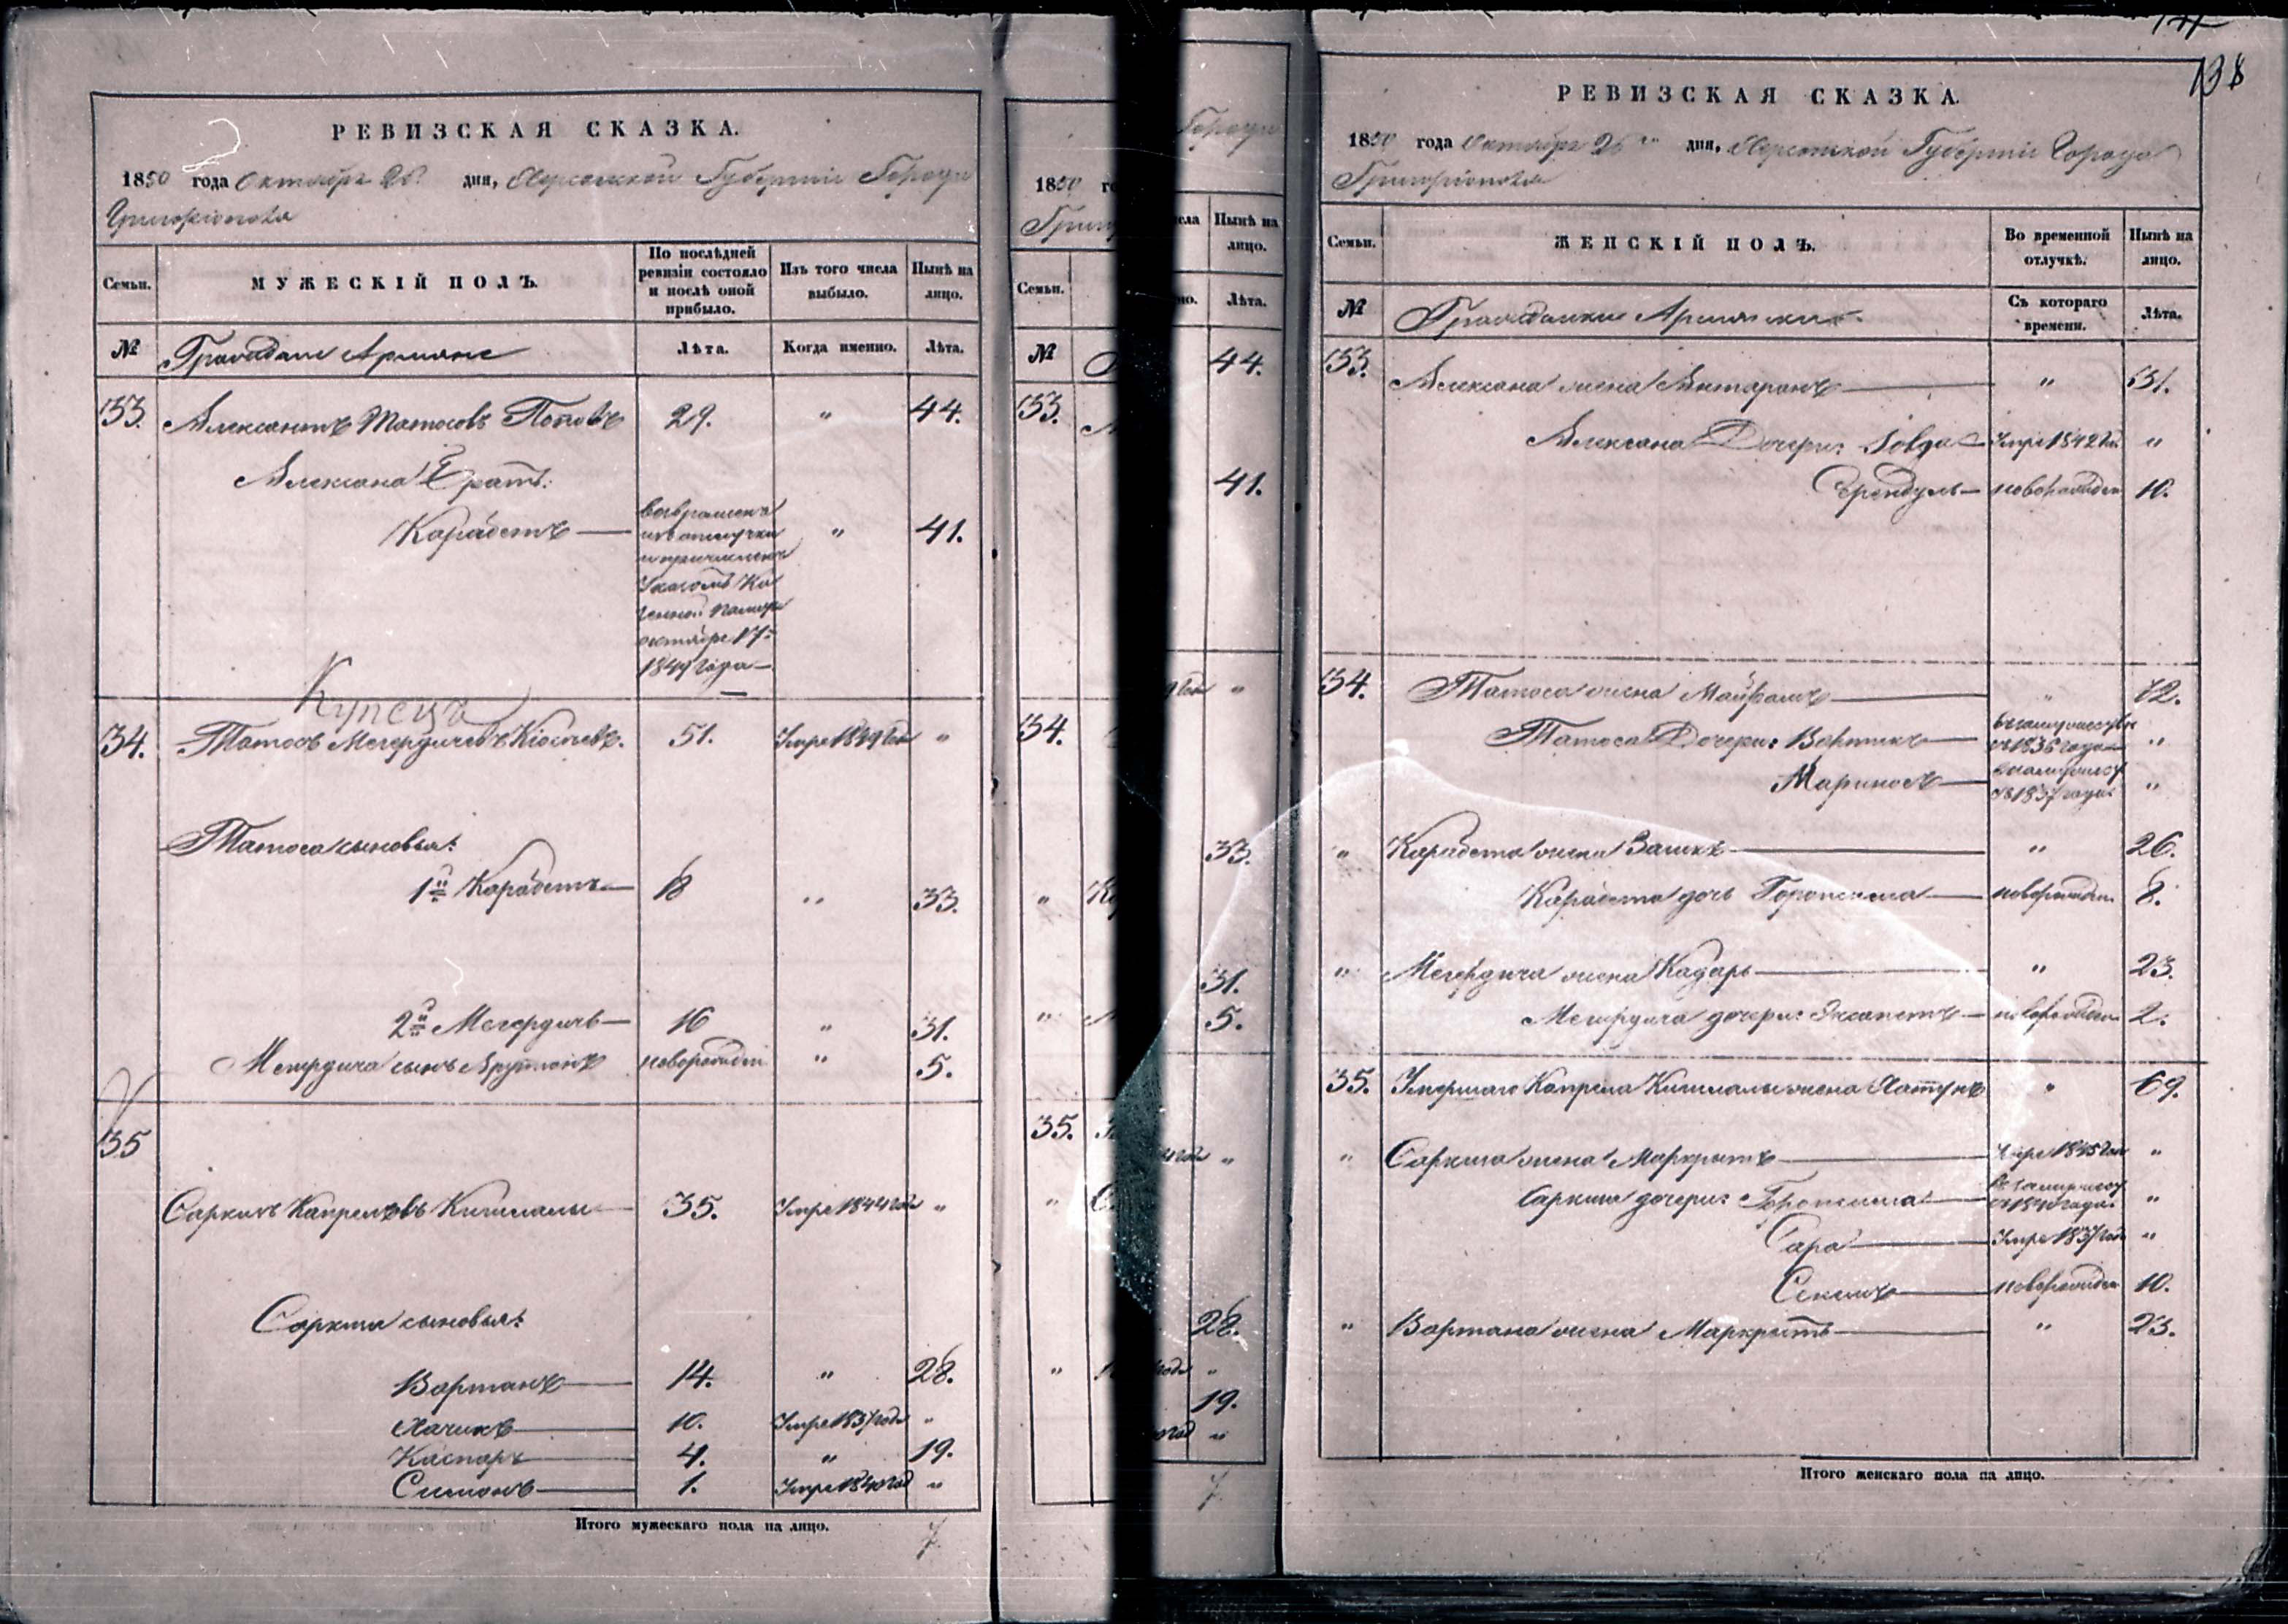 РЕВИЗСКАЯ СКАЗКА.
1850 года Октября 26 дня, Херсонской Губерніи Города
Григоріополя
Семьи. МУЖЕСКІЙ ПОЛЪ. По послѣдней ревизіи состояло и послѣ оной прибыло. Изъ того числа выбыло. Нынѣ на лицо.
№ Граждане Армяне Лѣта. Когда именно. Лѣта.
133. Алексанъ Татосовъ Поповъ 29. " 44.
Алексана Братъ:
Карабетъ — " 41.
возвращенъ
изъ отлучки
и причисленъ
Указомъ Ка
зенной Палаты
октября 17
1849 года —
Купецъ
134. Татосъ Мегердичевъ 51. Умре 1849 год "
Татоса сыновья:
1й Карабетъ — 18 " 33.
2й Мегердичь — 16 " 31.
Мегердича сынъ Арутюнъ новорожден " 5.
135
Саркисъ Капреловъ Кишмалы 35. Умре 1844 год "
Саркиса сыновья:
Вартанъ — 14. " 28.
Хачикъ — 10. Умре 1837 года "
Каспаръ — 4. " 19.
Симонъ — 1. Умре 1840 год "
Итого мужескаго пола на лицо. 7
1850 го
Григ
Семьи.
№
133.
134.
"
"
35.
"
"
Города
исла Нынѣ на лицо.
но. Лѣта.
44.
41.
"
33.
31.
5.
"
28.
года "
19.
год "
7
141
138
РЕВИЗСКАЯ СКАЗКА.
1850 года Октября 26 дня, Херсонской Губерніи Города
Григоріополя
Семьи. ЖЕНСКІЙ ПОЛЪ. Во временной отлучкѣ. Нынѣ на лицо.
№ Гражданки Армянки. Съ котораго времени. Лѣта.
133. Алексана жена Антарамъ — " 31.
Алексана Дочери: Умре 1842 год "
— новорожден 10.
134. Татоса жена Майрамъ — " 72.
Татоса Дочери: Вартикъ — въ замужествѣ съ 1836 года "
Мариносъ — въ замужест съ 1837 года "
" Карабета жена Вашкъ — " 26.
Карабета дочь Горопсима — новорожден. 8.
" Мегердича жена Кадаръ — " 23.
Мегердича дочери: — новорожден 2.
35. Умершаго Капрела Кишмалы жена Хатунъ " 69.
" Саркиса жена Маркритъ — Умре 1845 год "
Саркиса дочери: Горопсима — въ замужест съ 1840 года "
Сара — Умре 1837 год "
— новорожден 10.
" Вартана жена Маркритъ — " 23.
Итого женскаго пола на лицо.